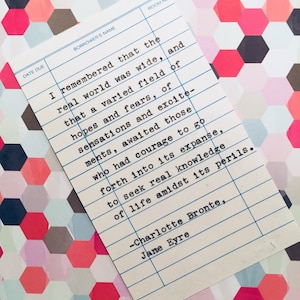 ROOM NU
BORROWER'S NAME
DATE DUE
I remembered that the
real world was wide, and
that a varied field of
hopes and fears, of
sensations and excite-
ments, awaited those
who had courage to go
forth into its expanse,
to seek real knowledge
of life amidst its perils.
-Charlotte Bronte,
Jane Eyre